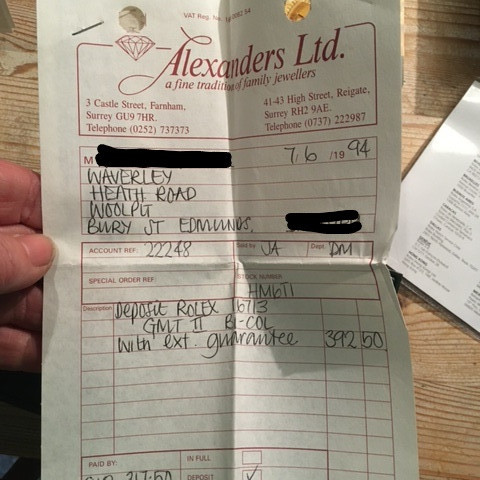 VAT Reg. No.
Alexanders Ltd.
a fine tradition of family jewellers
3 Castle Street, Farnham,
Surrey GU9 7HR.
Telephone (0252) 737373
41-43 High Street, Reigate,
Surrey RH2 9AE.
Telephone (0737) 222987
M
7/6/1994
WAVERLEY
HEATH ROAD
WOOLPIT
BURY ST EDMUNDS.
ACCOUNT REF: 22248 Sold by JA Dept. DM
SPECIAL ORDER REF: STOCK NUMBER
Description Deposit ROLEX 16713
GMT II BI-COL
with ext. guarantee 392 50
PAID BY: IN FULL
317.50 DEPOSIT ✓